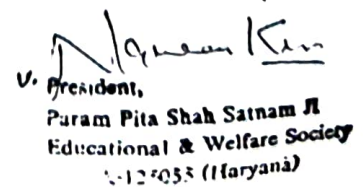 V. President,
Param Pita Shah Satnam JI
Educational & Welfare Society
-125055 (Haryana)